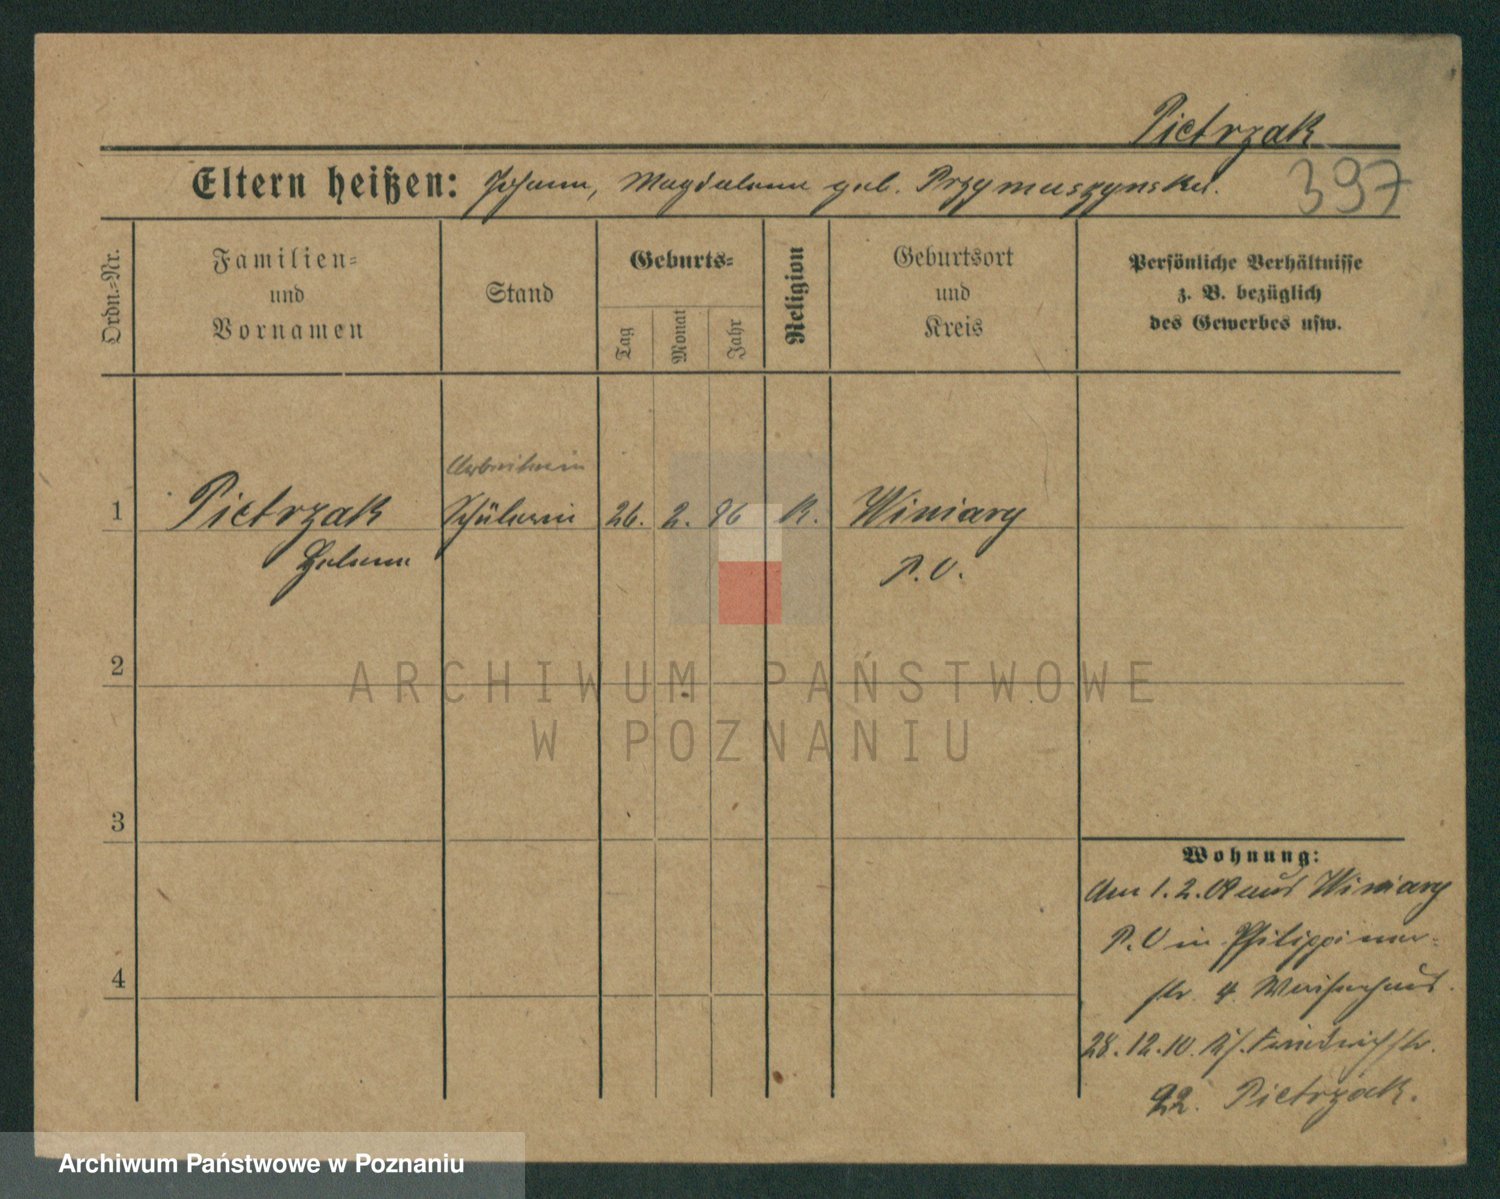 Pietrzak
Eltern heißen: Johann, Magdalena geb. Przymuszynska.
397
Ordn.-Nr.
Familien- und Vornamen
Stand
Geburts-
Tag
Monat
Jahr
Religion
Geburtsort und Kreis
Persönliche Verhältnisse
z. B. bezüglich
des Gewerbes usw.
Arbeiterin
1 Pietrzak Schülerin 26. 2. 96 K. Winiary
Helena P. O.
2
3
4
Wohnung:
Am 1. 2. 09 aus Winiary
P. O in Philippiner-
str. 4 Waisenhaus.
28. 12. 10. Friedrichstr.
22. Pietrzak.
ARCHIWUM PAŃSTWOWE
W POZNANIU
Archiwum Państwowe w Poznaniu